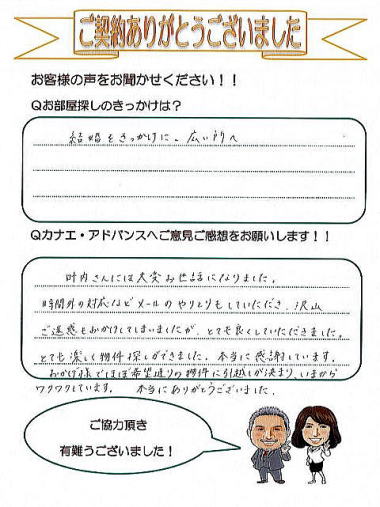 ご契約ありがとうございました
お客様の声をお聞かせください！！
Qお部屋探しのきっかけは？
結婚をきっかけに、広い所へ
Qカナエ・アドバンスへご意見ご感想をお願いします！！
叶内さんには大変お世話になりました。
時間外の対応などメールのやりとりもしていただき、沢山
ご迷惑もおかけしてしまいましたが、とても良くしていただきました。
とても楽しく物件探しができました。本当に感謝しています。
おかげ様でほぼ希望通りの物件に引越しが決まり、いまから
ワクワクしています。 本当にありがとうございました。
ご協力頂き
有難うございました！